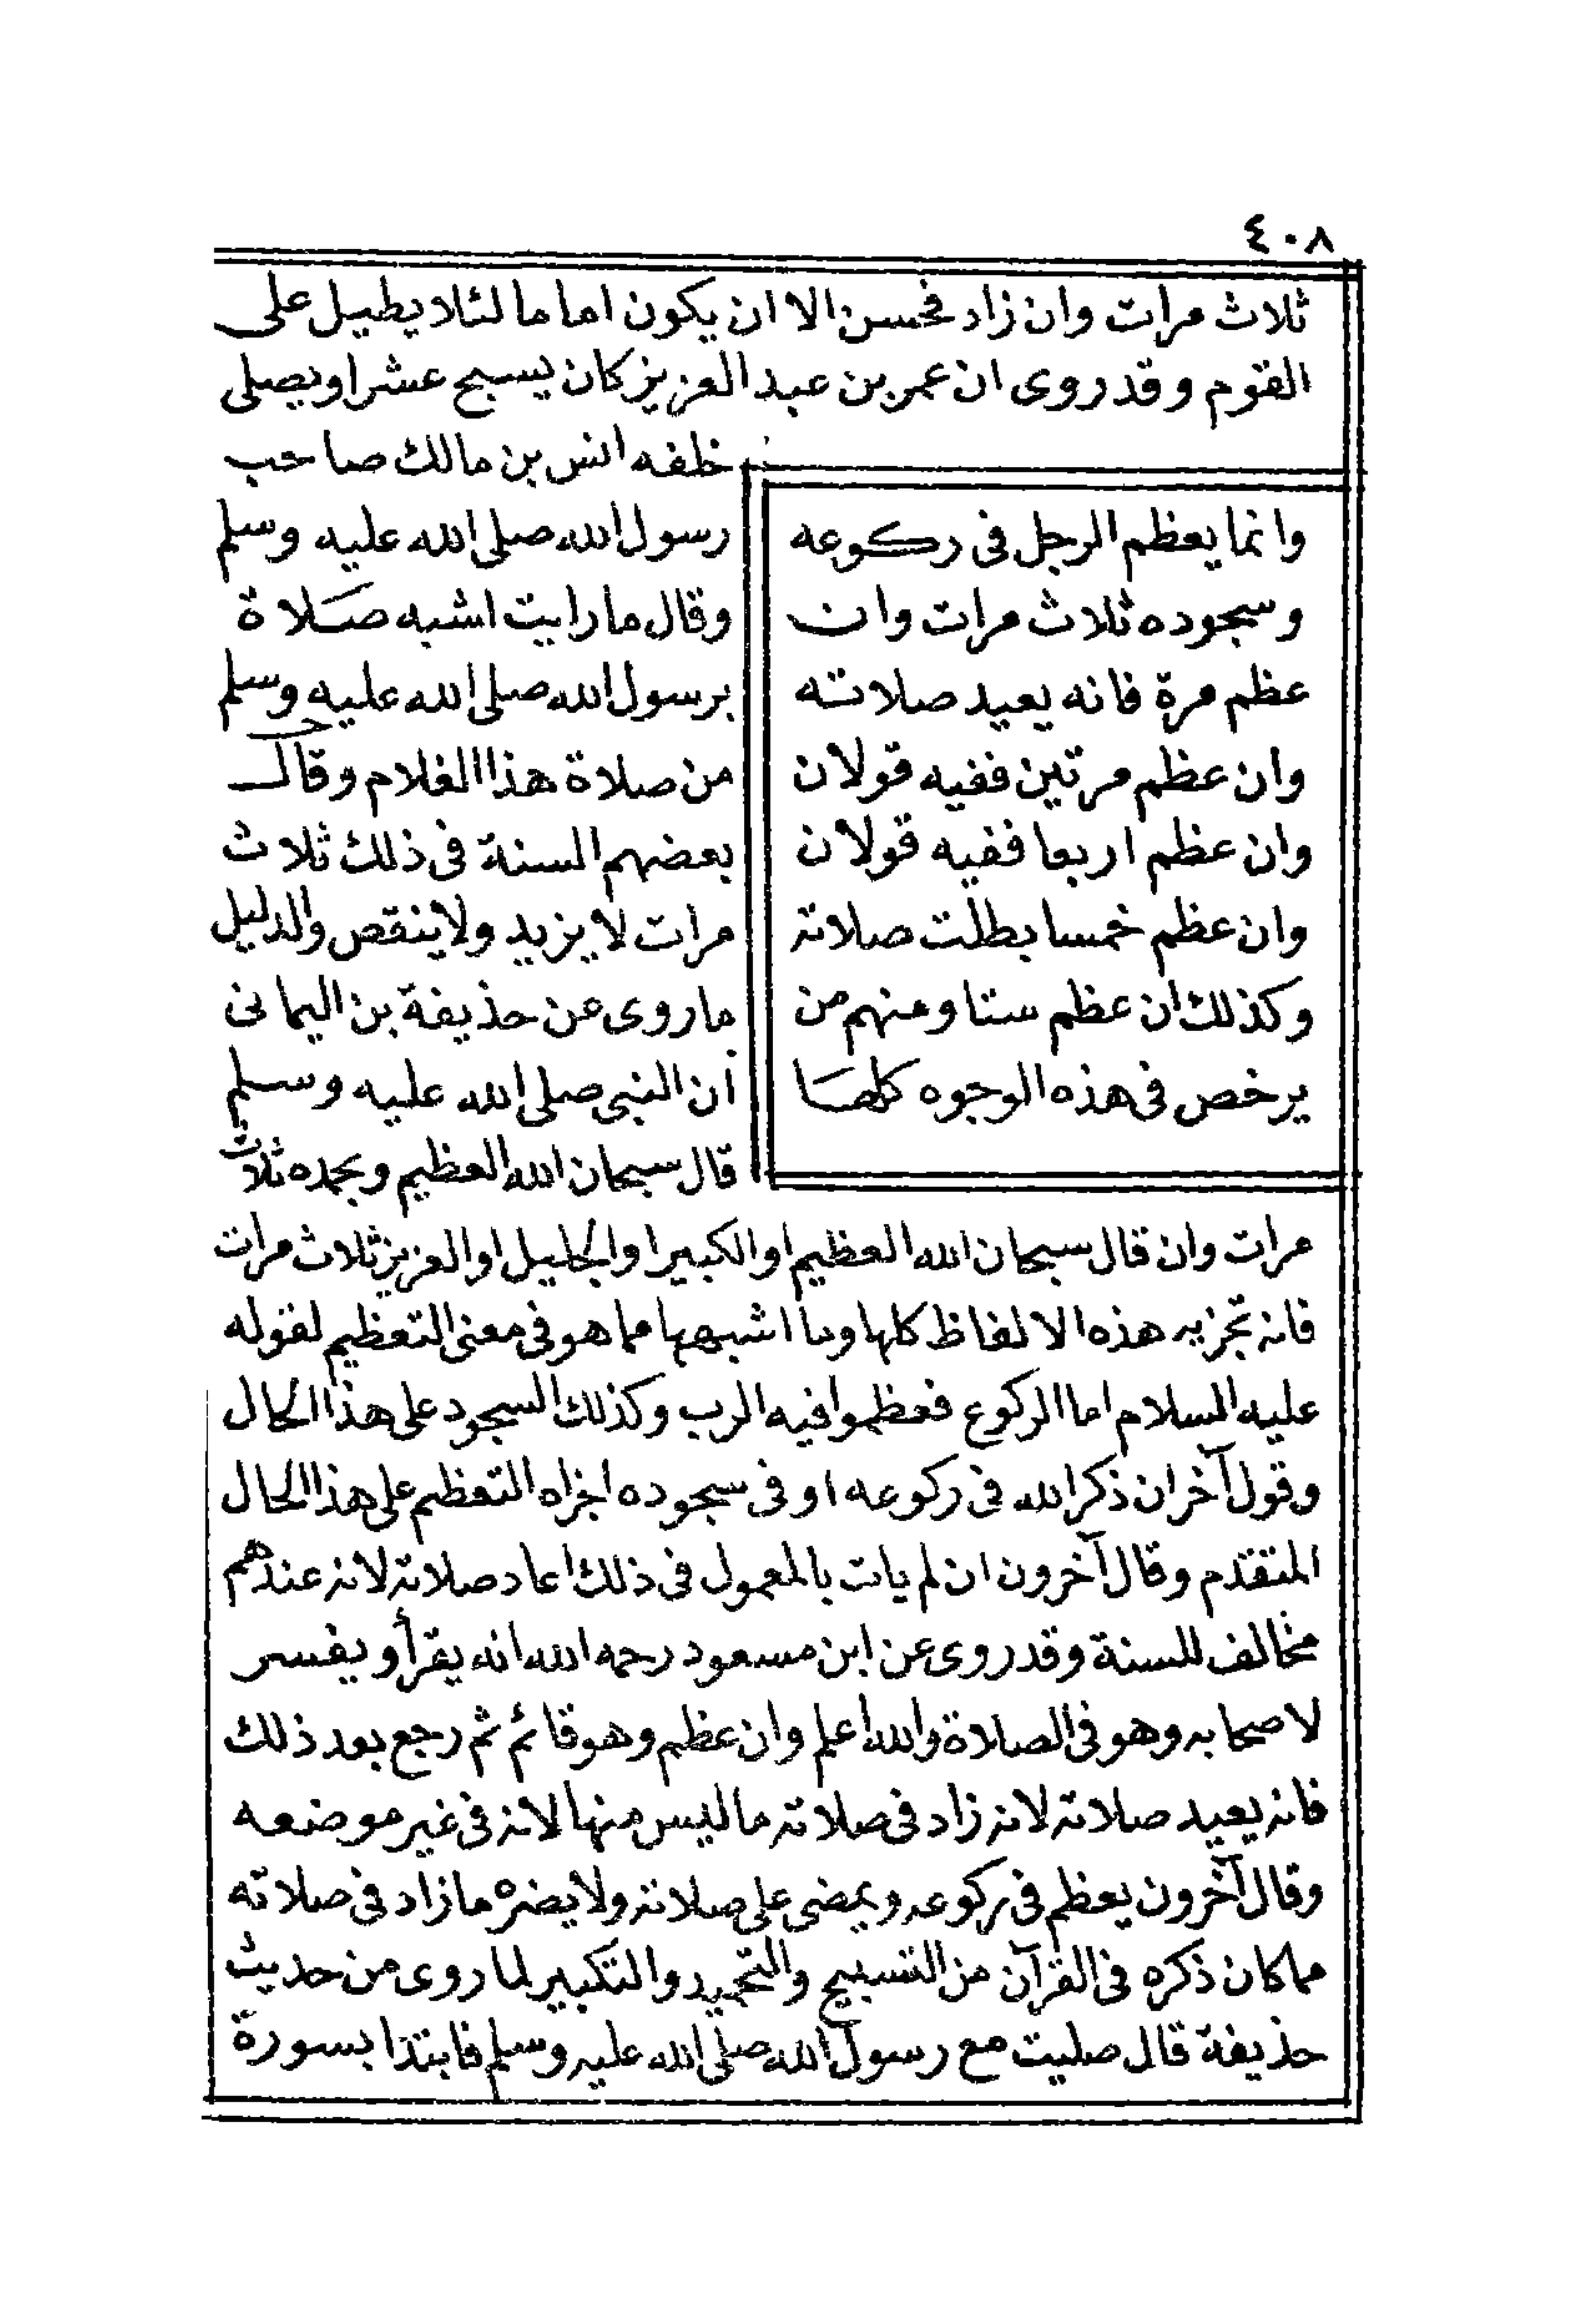 ٤٠٨
ثلاث مرات وان زاد فحسن الا ان يكون اماما لئلا يطيل على
القوم وقد روى ان عمر بن عبد العزيز كان يسبح عشرا ويصلى
خلفه انس بن مالك صاحب
رسول الله صلى الله عليه وسلم
وقال ما رايت اشبه صلاة
برسول الله صلى الله عليه وسلم
من صلاة هذا الغلام وقال
بعضهم السنة فى ذلك ثلاث
مرات لا يزيد ولا ينقص والدليل
ما روى عن حذيفة بن اليمانى
ان النبى صلى الله عليه وسلم
قال سبحان الله العظيم وبحمده ثلاث
وانما يعظم الرجل فى ركوعه
وسجوده ثلاث مرات وان
عظم مرة فانه يعيد صلاته
وان عظم مرتين ففيه قولان
وان عظم اربعا ففيه قولان
وان عظم خمسا بطلت صلاته
وكذلك ان عظم ستا ومنهم من
يرخص فى هذه الوجوه كلها
مرات وان قال سبحان الله العظيم او الكبير او الجليل او العزيز ثلاث مرات
فانه تجزيه هذه الالفاظ كلها وما اشبهها مما هو فى معنى التعظيم لقوله
عليه السلام اما الركوع فعظموا فيه الرب وكذلك السجود على هذا الحال
وقول آخر ان ذكر الله فى ركوعه او فى سجوده اجزاه التعظم على هذا الحال
المتقدم وقال آخرون ان لم يات بالمعمول فى ذلك اعاد صلاته لانه عندهم
مخالف للسنة وقد روى عن ابن مسعود رحمه الله انه يقرأ ويفسر
لاصحابه وهو فى الصلاة والله اعلم وان عظم وهو قائم ثم رجع بعد ذلك
فانه يعيد صلاته لانه زاد فى صلاته ما ليس منها لانه فى غير موضعه
وقال آخرون يعظم فى ركوعه ويمضى على صلاته ولا يضره ما زاد فى صلاته
مما كان ذكره فى القرآن من التسبيح والتحميد والتكبير لما روى من حديث
حذيفة قال صليت مع رسول الله صلى الله عليه وسلم فابتدا بسورة